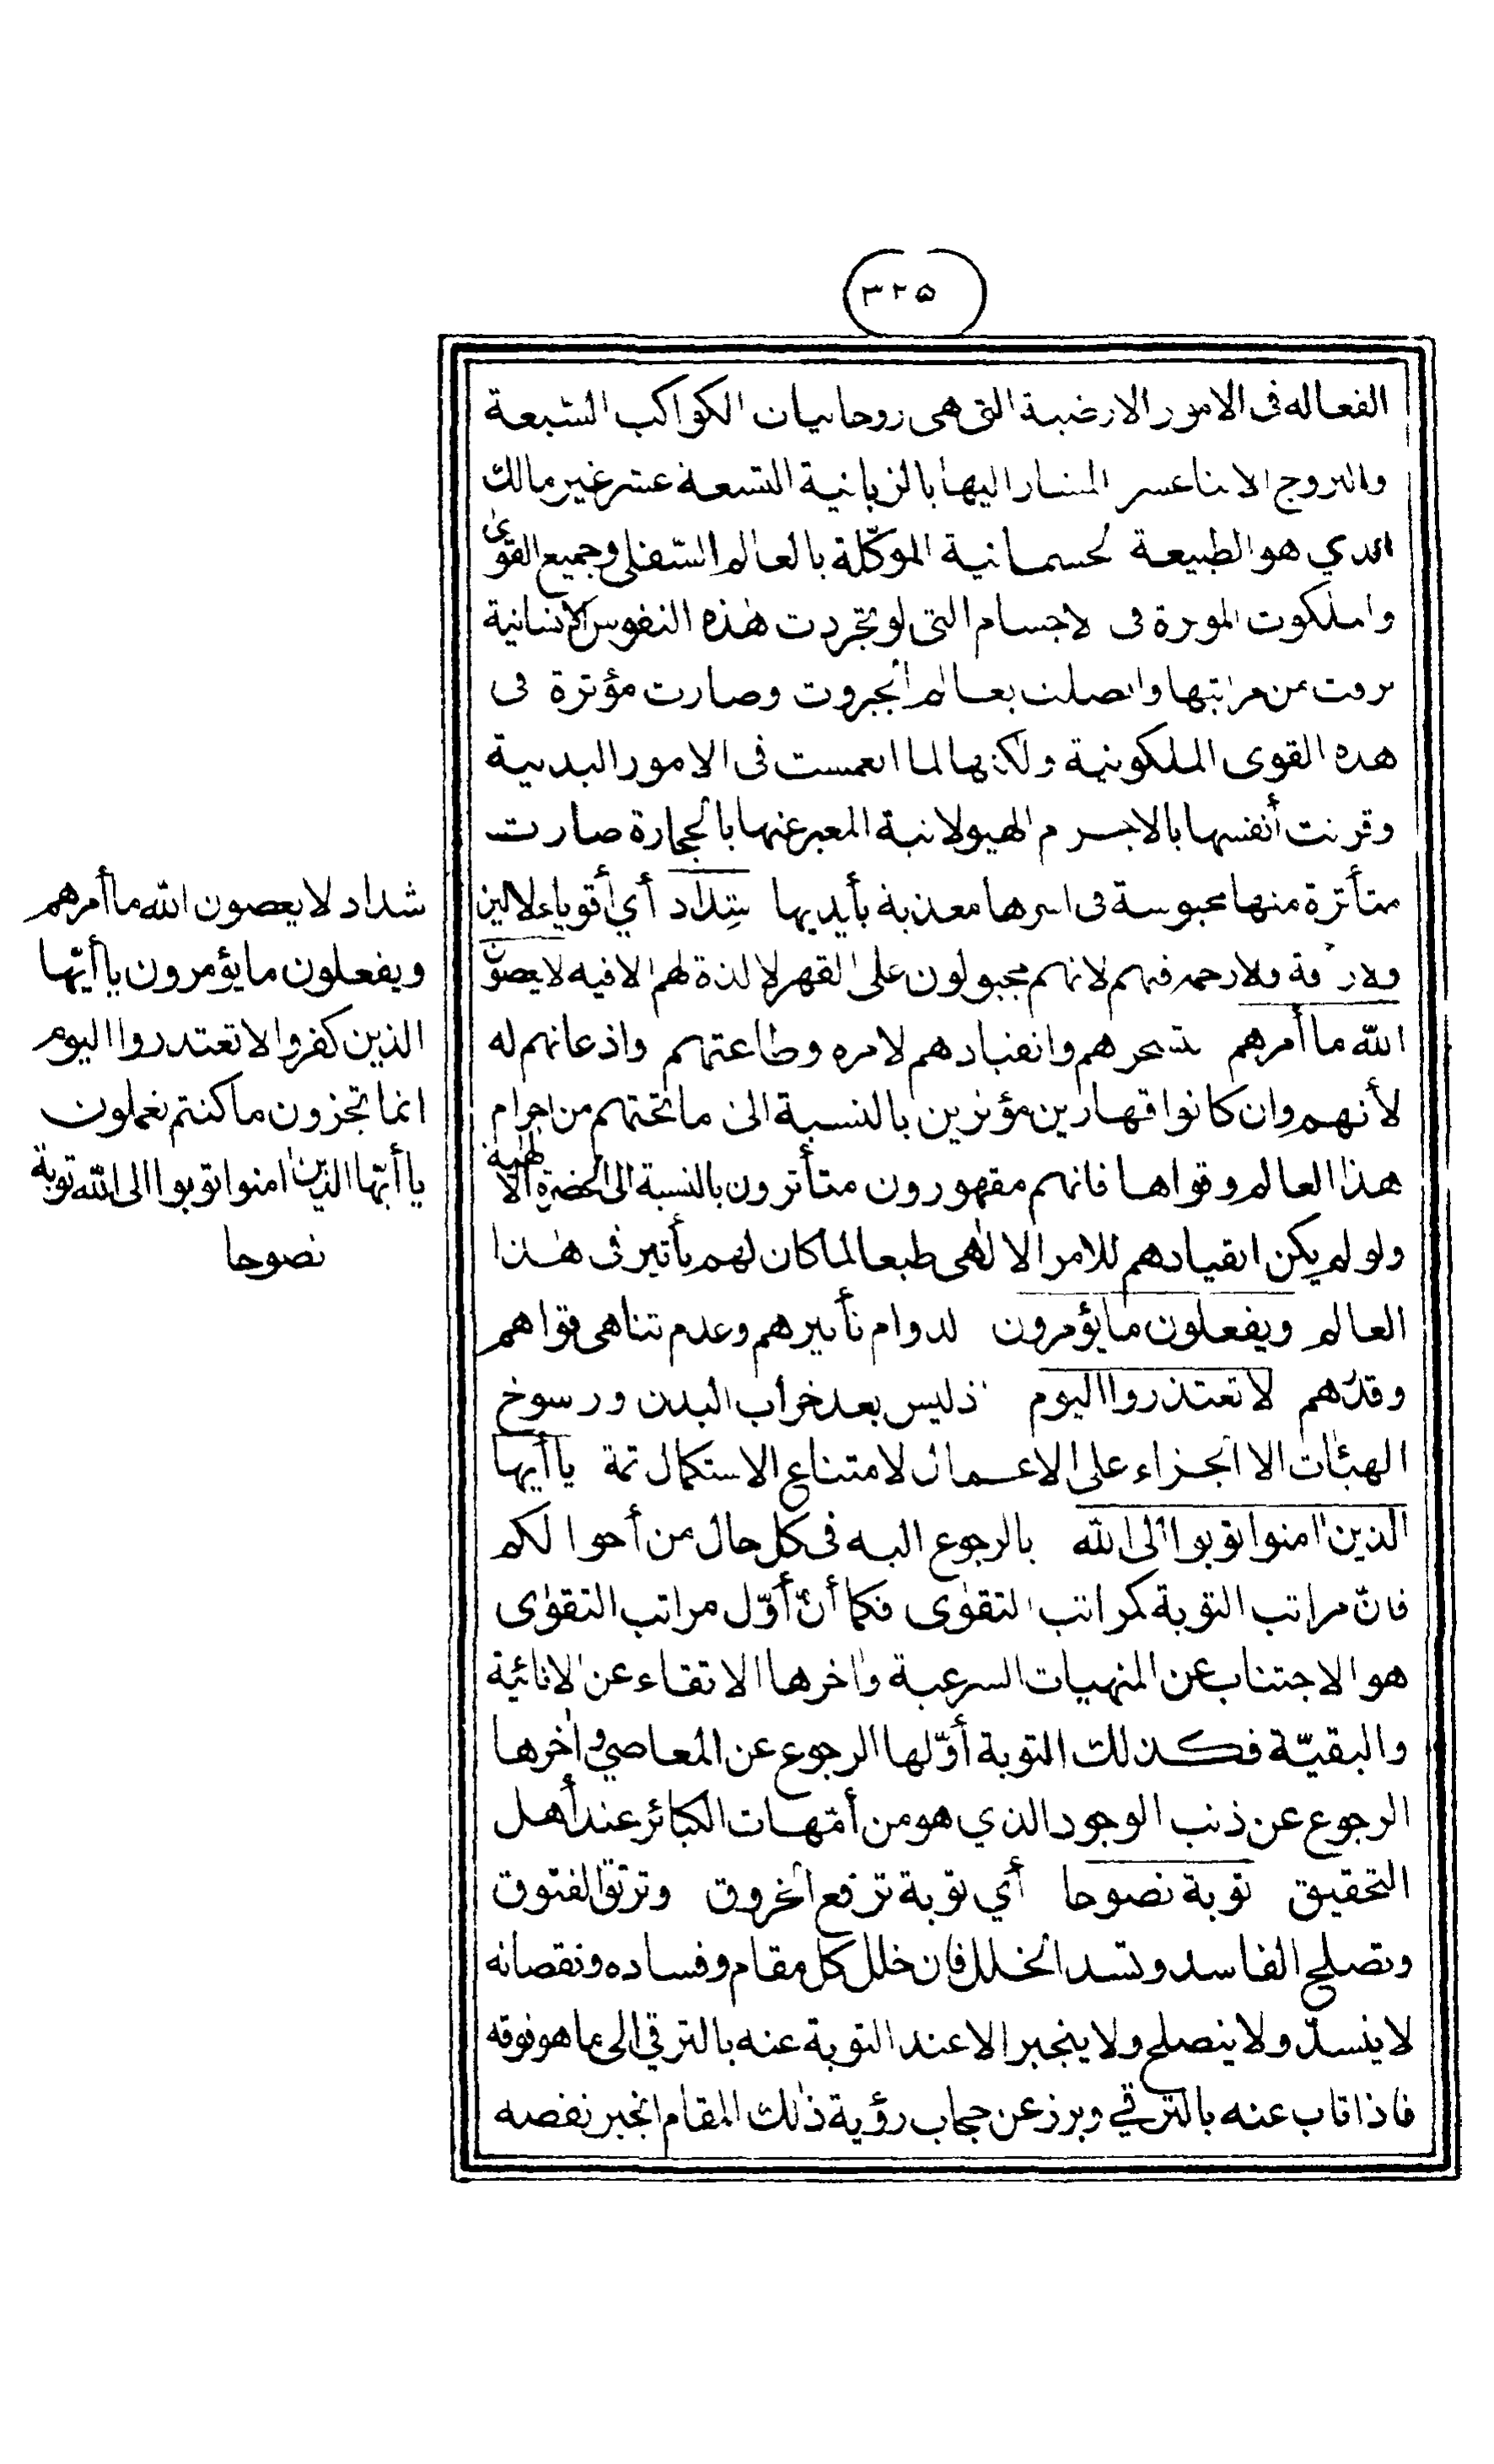 ٣٢٥
الفعاله فى الامور الارضية التى هى روحانيات الكواكب السبعة
والبروج الاثنا عشر المشار اليها بالزبانية التسعة عشر غير مالك
الذي هو الطبيعة الجسمانية الموكّلة بالعالم السّفلى وجميع القوىٰ
والملكوت المؤثرة فى الاجسام التى لو تجردت هٰذه النفوس الانسانية
ترقت من مراتبها واتصلت بعالم الجبروت وصارت مؤثرة فى
هذه القوى الملكوتية ولكنها لما انغمست فى الامور البدنية
وقرنت أنفسها بالاجرام الهيولانية المعبر عنها بالحجارة صارت
متأثرة منها محبوسة فى اسرها معذبة بأيديها شداد أي أقوياء لا لين
ولا رأفة ولا رحمة فيهم لانهم مجبولون على القهر لا لذة لهم الا فيه لا يعصون
الله ما أمرهم لتسخرهم وانقيادهم لامره وطاعتهم واذعانهم له
لأنهم وان كانوا قهارين مؤثرين بالنسبة الى ما تحتهم من اجرام
هذا العالم وقواها فانهم مقهورون متأثرون بالنسبة الى الحضرة الالهية
ولو لم يكن انقيادهم للامر الالٰهى طبعا لما كان لهم تأثير فى هٰذا
العالم ويفعلون ما يؤمرون لدوام تأثيرهم وعدم تناهى قواهم
وقدرهم لا تعتذروا اليوم اذ ليس بعد خراب البدن ورسوخ
الهيئات الا الجزاء على الاعمال لامتناع الاستكمال ثمة يا أيها
الذين اٰمنوا توبوا الى الله بالرجوع اليه فى كل حال من أحوالكم
فانّ مراتب التوبة كمراتب التقوٰى فكما أنّ أوّل مراتب التقوٰى
هو الاجتناب عن المنهيات الشرعية واٰخرها الاتقاء عن الانائية
والبقيّة فكذلك التوبة أوّلها الرجوع عن المعاصي واٰخرها
الرجوع عن ذنب الوجود الذي هو من أمّهات الكبائر عند أهل
التحقيق توبة نصوحا أي توبة ترفع الخروق وترتق الفتوق
وتصلح الفاسد وتسد الخلل فان خلل كل مقام وفساده ونقصانه
لا ينسدّ ولا ينصلح ولا ينجبر الا عند التوبة عنه بالترقي الى ما هو فوقه
فاذا تاب عنه بالترقي وبرز عن حجاب رؤية ذٰلك المقام انجبر نقصه
شداد لا يعصون الله ما أمرهم
ويفعلون ما يؤمرون يا أيّها
الذين كفروا لا تعتذروا اليوم
انما تجزون ما كنتم تعملون
يا أيّها الذين اٰمنوا توبوا الى الله توبة
نصوحا